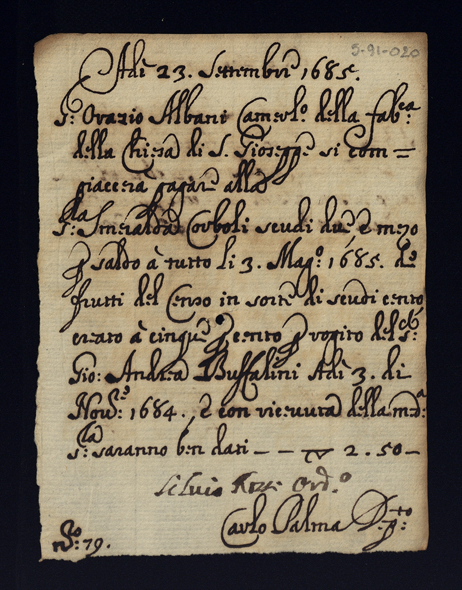 5-91-020
Adì 23. Settembre 1685.
Sr: Orazio Albani Camerlo. della fabca:
della Chiesa di S. Gioseppe si com=
piacerà pagare alla
Sra: Smeralda Corboli scudi due, e mezo
p saldo à tutto li 3. Mago: 1685. de
frutti del Censo in sorte di scudi cento
creato à cinque p cento p rogito del Sr:
Gio: Andrea Buffalini Adì 3. di
Nove: 1684., e con ricevuta della meda:
Sra: saranno ben dati — — ▽ 2.50 —
Silvio Ordo.
Carlo Palma Depto:
No: 79.